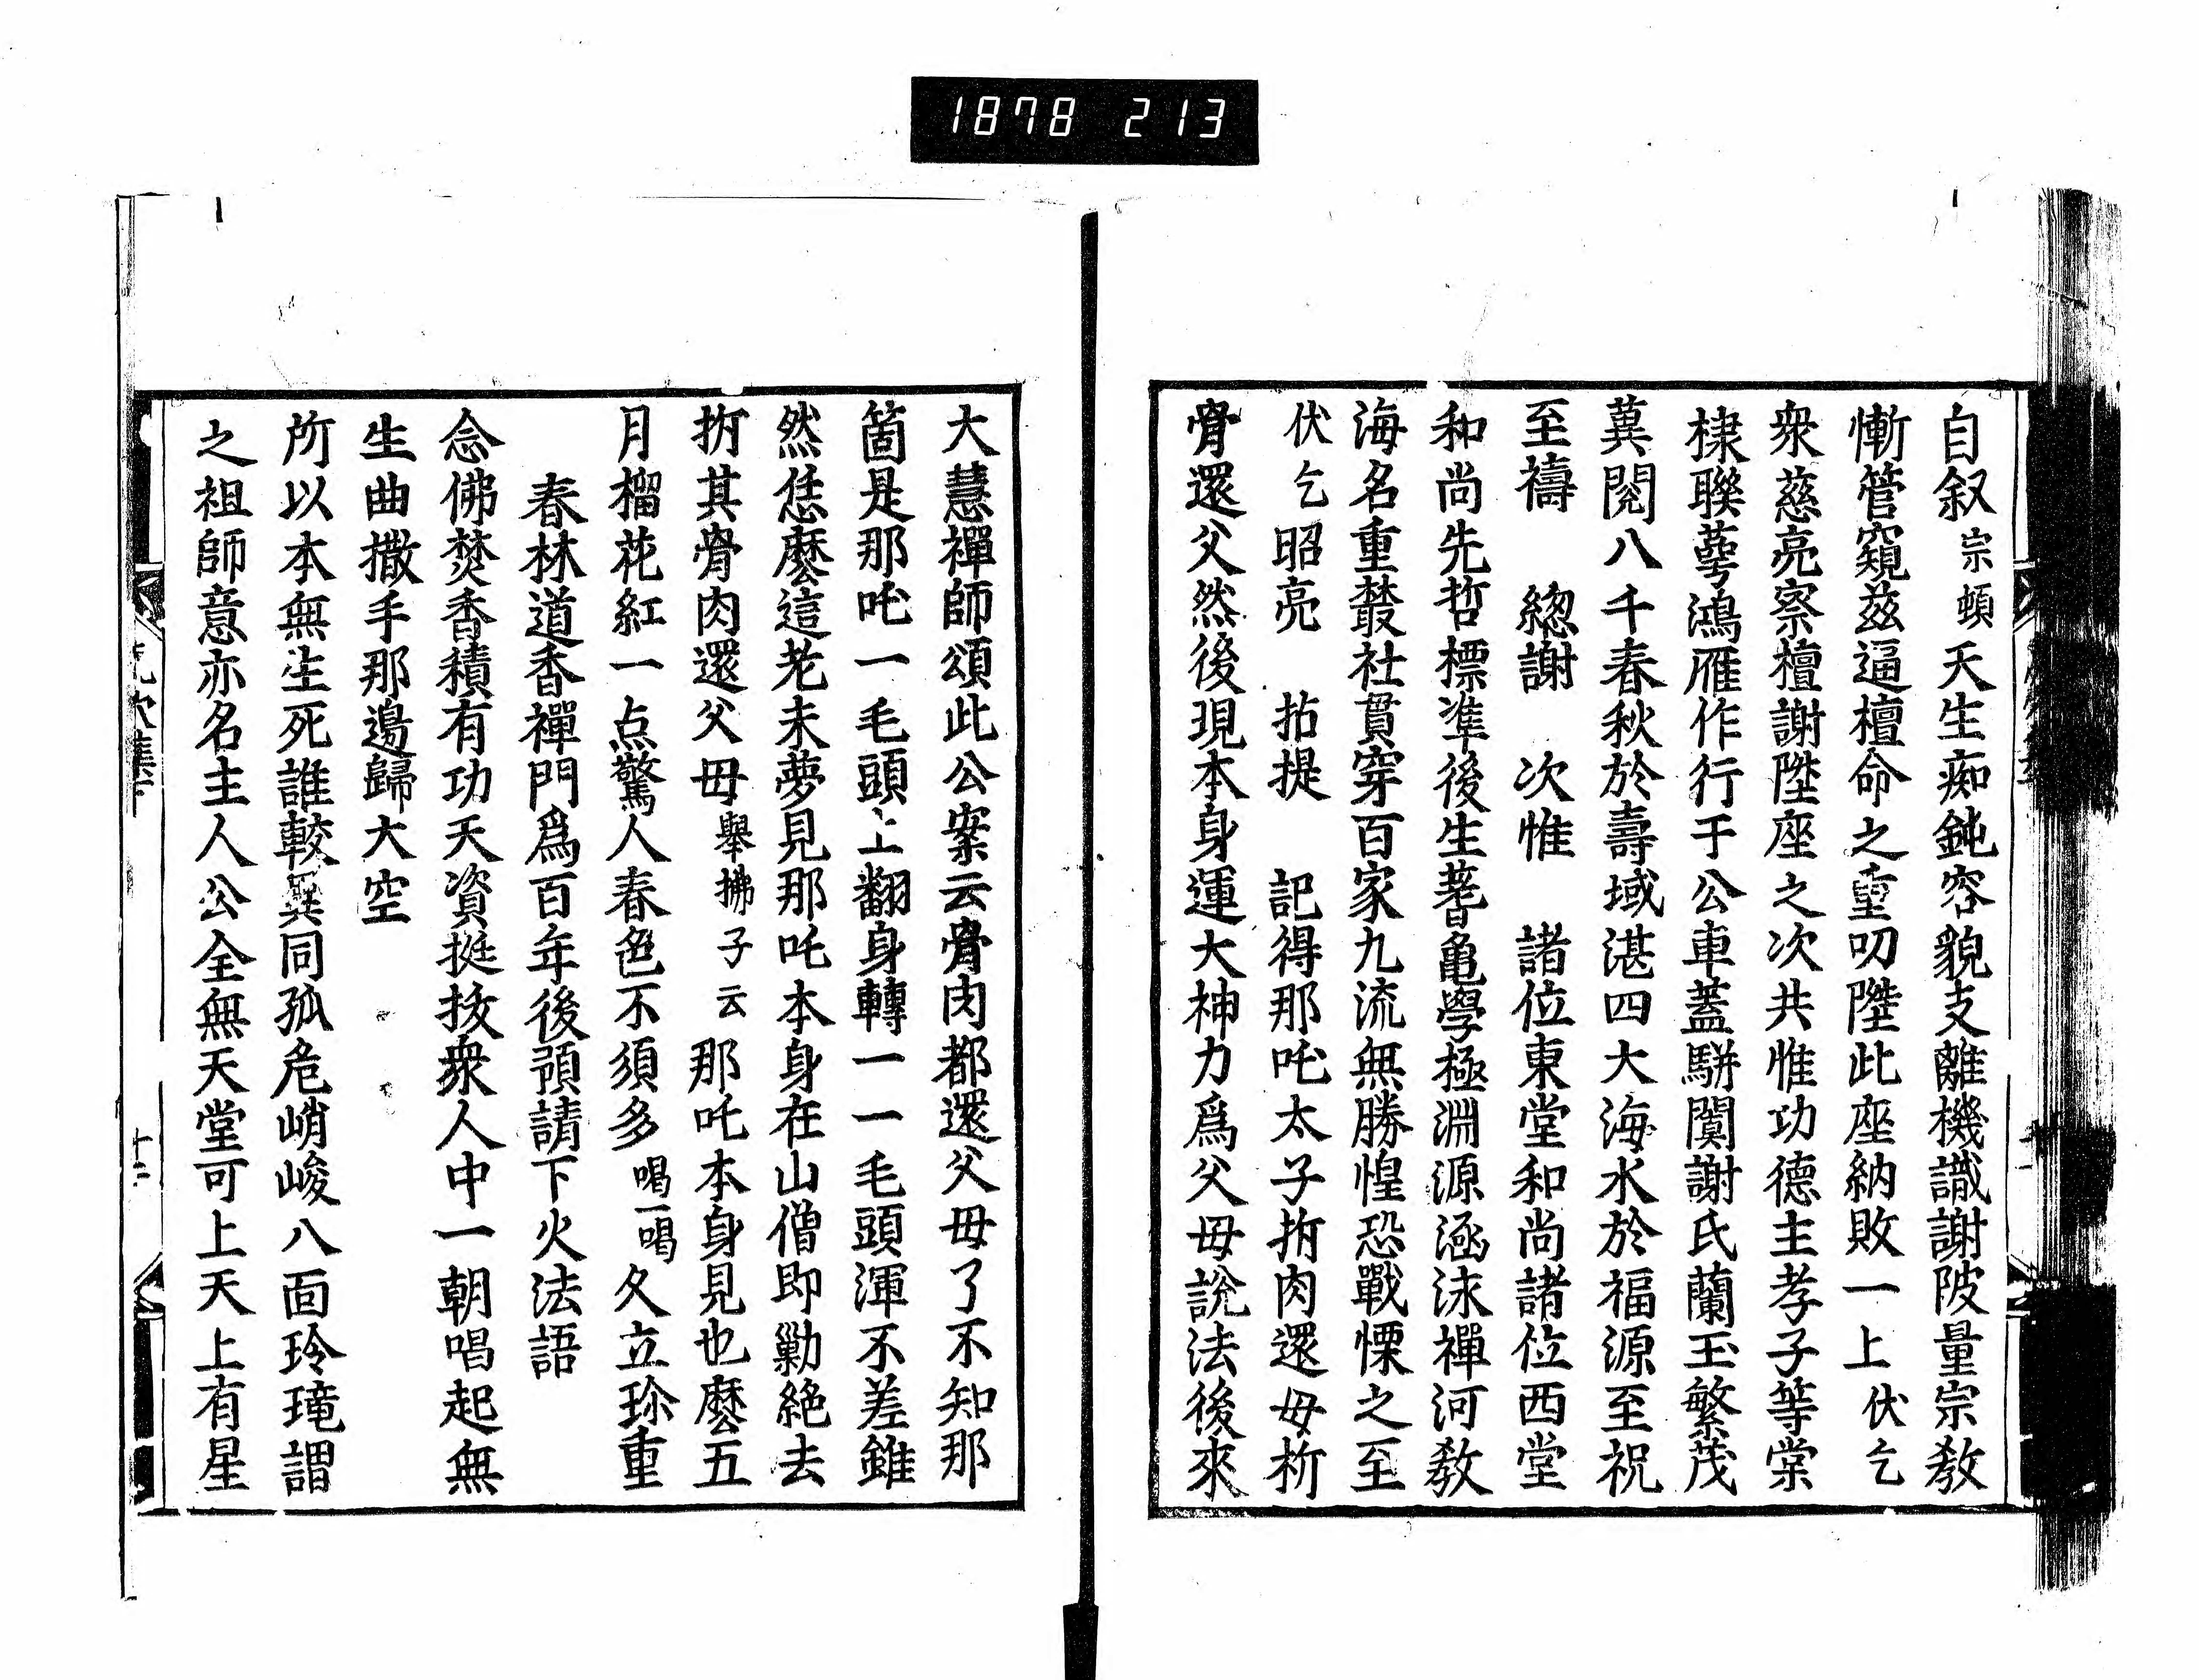 1878 213
自叙宗頓天生痴鈍容貌支離機識謝陂量宗教
慚管窺茲逼檀命之重叨陞此座納敗一上伏乞
衆慈亮察檀謝陞座之次共惟功德主孝子等棠
棣聯蕚鴻雁作行于公車蓋駢闐謝氏蘭玉繁茂
蓂閱八千春秋於壽域湛四大海水於福源至祝
至禱 緫謝 次惟 諸位東堂和尚諸位西堂
和尚先哲標準後生蓍龜學極淵源涵泳禪河教
海名重叢社貫穿百家九流無勝惶恐戰慄之至
伏乞昭亮 拈提 記得那吒太子折肉還母析
骨還父然後現本身運大神力爲父母說法後來
大慧禪師頌此公案云骨肉都還父母了不知那
箇是那吒一毛頭上翻身轉一一毛頭渾不差雖
然恁麼這老未夢見那吒本身在山僧即勦絕去
折其骨肉還父母舉拂子云那吒本身見也麼五
月榴花紅一点驚人春色不須多喝一喝久立珍重
春林道香禪門爲百年後預請下火法語
念佛焚香積有功天資挺抜衆人中一朝唱起無
生曲撒手那邊歸大空
所以本無生死誰較異同孤危峭峻八面玲瓏謂
之祖師意亦名主人公全無天堂可上天上有星